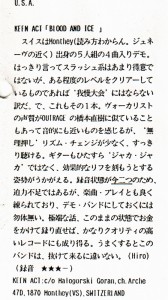 U.S.A.
KEIN ACT「BLOOD AND ICE 」
スイスはMonthey(読み方わからん。ジュネ
ーヴの近く)出身の5人組の4曲入りデモ。
はっきり言ってスラッシュ系はあまり得意で
はないが、ある程度のレベルをクリアーして
いるものであれば“我慢大会”にはならない
訳だ、で、これもその1本。ヴォーカリスト
の声質がOUTRAGEの橋本直樹に似ていること
もあって音的にも近いものを感じるが、“無
理押し”リズム・チェンジが少なく、すっき
り聴ける。ギターもひたすら“ジャカ・ジャ
カ”ではなく、効果的なリフを刻もうとする
姿勢がうかがえる。録音状態が今二つのため
迫力不足ではあるが、楽曲・プレイとも良く
練られており、デモ・バンドにしておくには
勿体無い。極端な話、このままの状態でお金
をかけて録り直せば、かなりクオリティの高
いレコードにも成り得る。うまくするとこの
バンドは、抜けて来るに違いない。(Hiro)
(録音 ★★★−)
KEIN ACT:c/o Halogorski Goran,ch.Arche
47D,1870 Monthey(VS),SWITZERLAND